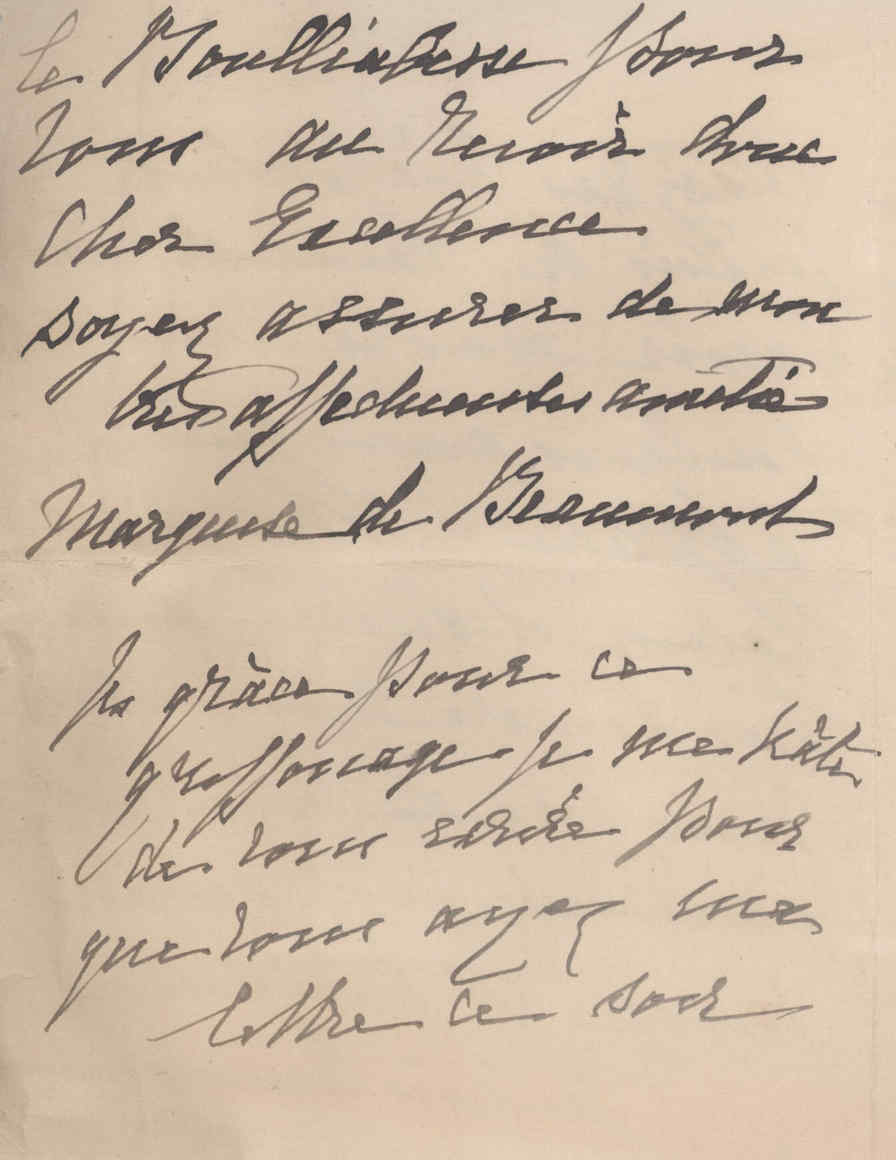 le Boulliabesse pour
vous au revoir donc
Cher Excellence
soyez assurer de mon
très affectueuse amitié
Marquise de Beaumont
Je grâce pour ce
griffonage je me hâte
de vous écrire pour
que vous ayez ma
lettre ce soir